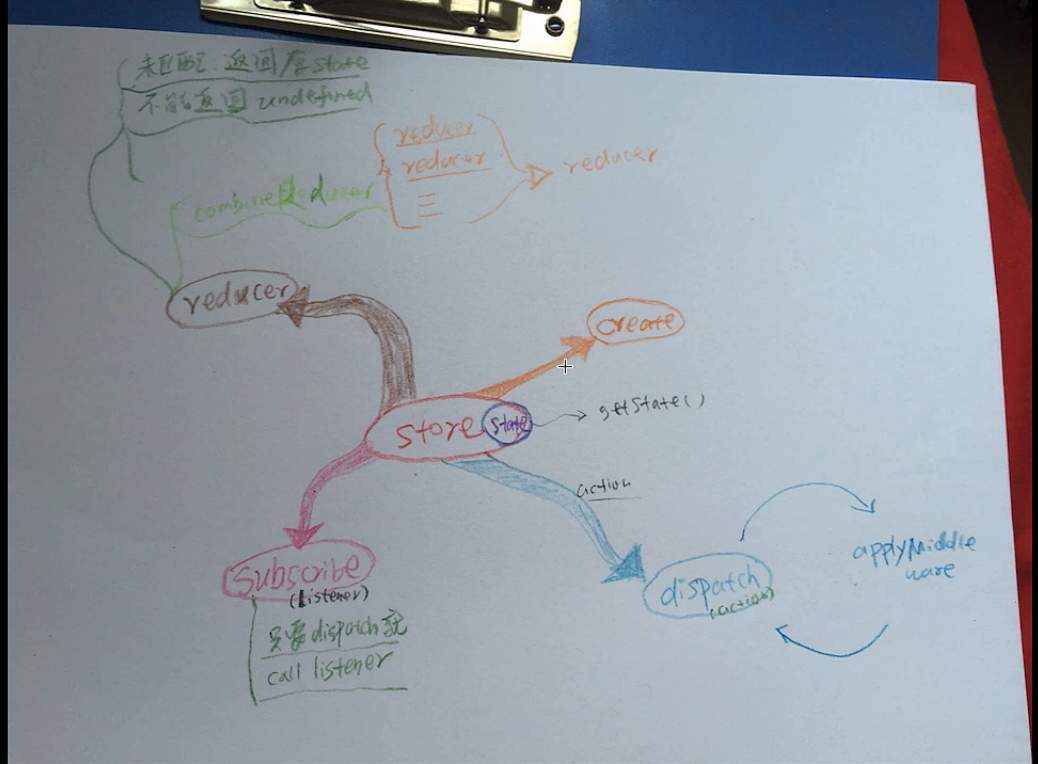 未匹配 返回原state
不能返回 undefined
reducer
reducer
reducer
combineReducer
reducer
create
store
state
getState()
action
subscribe
(Listener)
只要dispatch就
call listener
dispatch
(action)
applyMiddle
ware